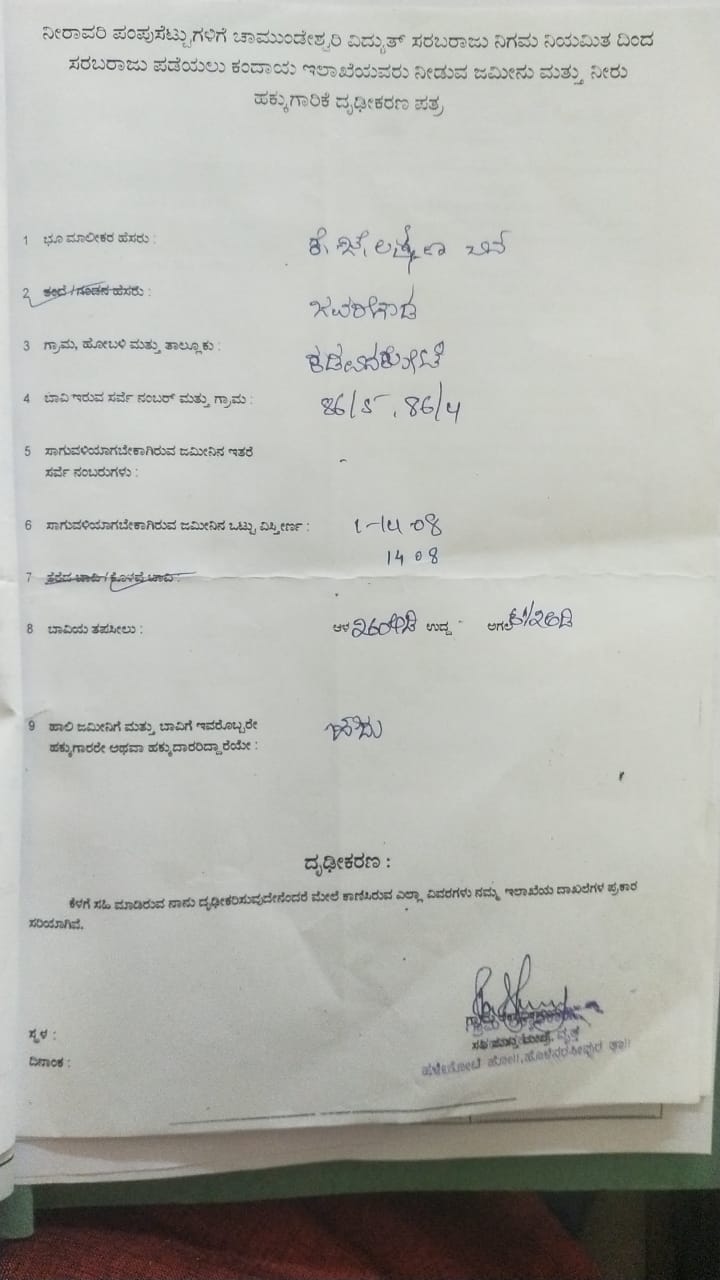 ನೀರಾವರಿ ಪಂಪುಸೆಟ್ಟುಗಳಿಗೆ ಚಾಮುಂಡೇಶ್ವರಿ ವಿದ್ಯುತ್ ಸರಬರಾಜು ನಿಗಮ ನಿಯಮಿತ ದಿಂದ
ಸರಬರಾಜು ಪಡೆಯಲು ಕಂದಾಯ ಇಲಾಖೆಯವರು ನೀಡುವ ಜಮೀನು ಮತ್ತು ನೀರು
ಹಕ್ಕುಗಾರಿಕೆ ದೃಢೀಕರಣ ಪತ್ರ
1 ಭೂ ಮಾಲೀಕರ ಹೆಸರು : ಕೆ. ಜೆ.
2 ತಂದೆ / ಗಂಡನ ಹೆಸರು : ಜವರೇಗೌಡ
3 ಗ್ರಾಮ, ಹೋಬಳಿ ಮತ್ತು ತಾಲ್ಲೂಕು :
4 ಬಾವಿ ಇರುವ ಸರ್ವೆ ನಂಬರ್ ಮತ್ತು ಗ್ರಾಮ : 86/5, 86/4
5 ಸಾಗುವಳಿಯಾಗಬೇಕಾಗಿರುವ ಜಮೀನಿನ ಇತರೆ -
ಸರ್ವೆ ನಂಬರುಗಳು :
6 ಸಾಗುವಳಿಯಾಗಬೇಕಾಗಿರುವ ಜಮೀನಿನ ಒಟ್ಟು ವಿಸ್ತೀರ್ಣ : 1-14 08
14 08
7 ತೆರೆದ ಬಾವಿ / ಕೊಳವೆ ಬಾವಿ :
8 ಬಾವಿಯ ತಪಸೀಲು : ಆಳ 260 ಅಡಿ ಉದ್ದ ಅಗಲ
9 ಹಾಲಿ ಜಮೀನಿಗೆ ಮತ್ತು ಬಾವಿಗೆ ಇವರೊಬ್ಬರೇ ಹೌದು
ಹಕ್ಕುಗಾರರೇ ಅಥವಾ ಹಕ್ಕುದಾರರಿದ್ದಾರೆಯೇ :
ದೃಢೀಕರಣ :
ಕೆಳಗೆ ಸಹಿ ಮಾಡಿರುವ ನಾನು ದೃಢೀಕರಿಸುವುದೇನೆಂದರೆ ಮೇಲೆ ಕಾಣಿಸಿರುವ ಎಲ್ಲಾ ವಿವರಗಳು ನಮ್ಮ ಇಲಾಖೆಯ ದಾಖಲೆಗಳ ಪ್ರಕಾರ
ಸರಿಯಾಗಿವೆ.
ಗ್ರಾಮ
ಸ್ಥಳ : ಸಹಿ ಮತ್ತು ಮೊಹರು ವೃತ್ತ
ದಿನಾಂಕ : ಹಳೇಕೋಟೆ ಹೋ||, ಹೊಳೆನರಸೀಪುರ ತಾ||